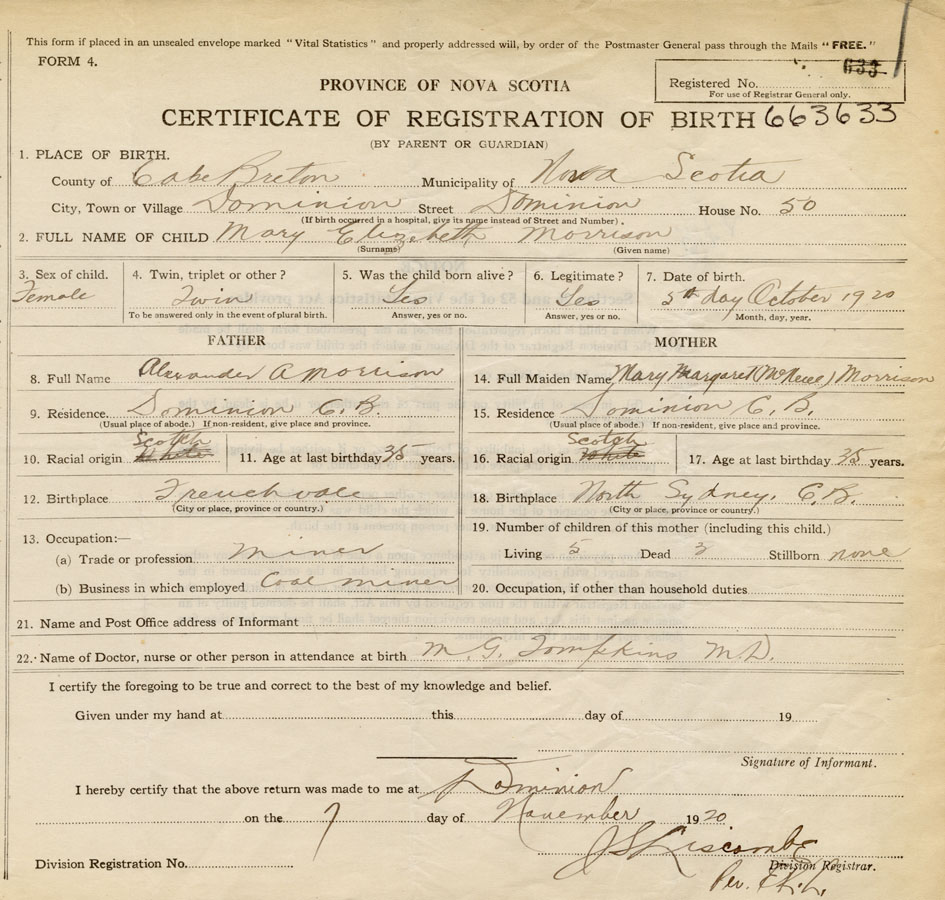 This form if placed in an unsealed envelope marked "Vital Statistics" and properly addressed will, by order of the Postmaster General pass through the Mails "FREE."
FORM 4.
633
Registered No.
For use of Registrar General only.
PROVINCE OF NOVA SCOTIA
CERTIFICATE OF REGISTRATION OF BIRTH 663633
(BY PARENT OR GUARDIAN)
1. PLACE OF BIRTH.
County of Cape Breton Municipality of Nova Scotia
City, Town or Village Dominion Street Dominion House No. 50
(If birth occurred in a hospital, give its name instead of Street and Number).
2. FULL NAME OF CHILD Mary Elizabeth Morrison
(Surname) (Given name)
3. Sex of child. 4. Twin, triplet or other? 5. Was the child born alive? 6. Legitimate? 7. Date of birth.
Female Twin Yes Yes 5th day October 1920
To be answered only in the event of plural birth. Answer, yes or no. Answer, yes or no. Month, day, year.
FATHER MOTHER
8. Full Name Alexander A Morrison 14. Full Maiden Name Mary Margaret (McNeil) Morrison
9. Residence. Dominion C.B. 15. Residence Dominion C.B.
(Usual place of abode.) If non-resident, give place and province. (Usual place of abode.) If non-resident, give place and province.
Scotch Scotch
10. Racial origin White 11. Age at last birthday 35 years. 16. Racial origin White 17. Age at last birthday 35 years.
12. Birthplace Frenchvale 18. Birthplace North Sydney, C.B.
(City or place, province or country.) (City or place, province or country.)
13. Occupation:— 19. Number of children of this mother (including this child.)
(a) Trade or profession Miner Living 5 Dead 3 Stillborn none
(b) Business in which employed Coal miner 20. Occupation, if other than household duties
21. Name and Post Office address of Informant
22. Name of Doctor, nurse or other person in attendance at birth M. G. Tompkins M.D.
I certify the foregoing to be true and correct to the best of my knowledge and belief.
Given under my hand at this day of 19
Signature of Informant.
I hereby certify that the above return was made to me at Dominion
on the 7 day of November 1920
J S Liscombe
Division Registration No. Division Registrar.
Per.